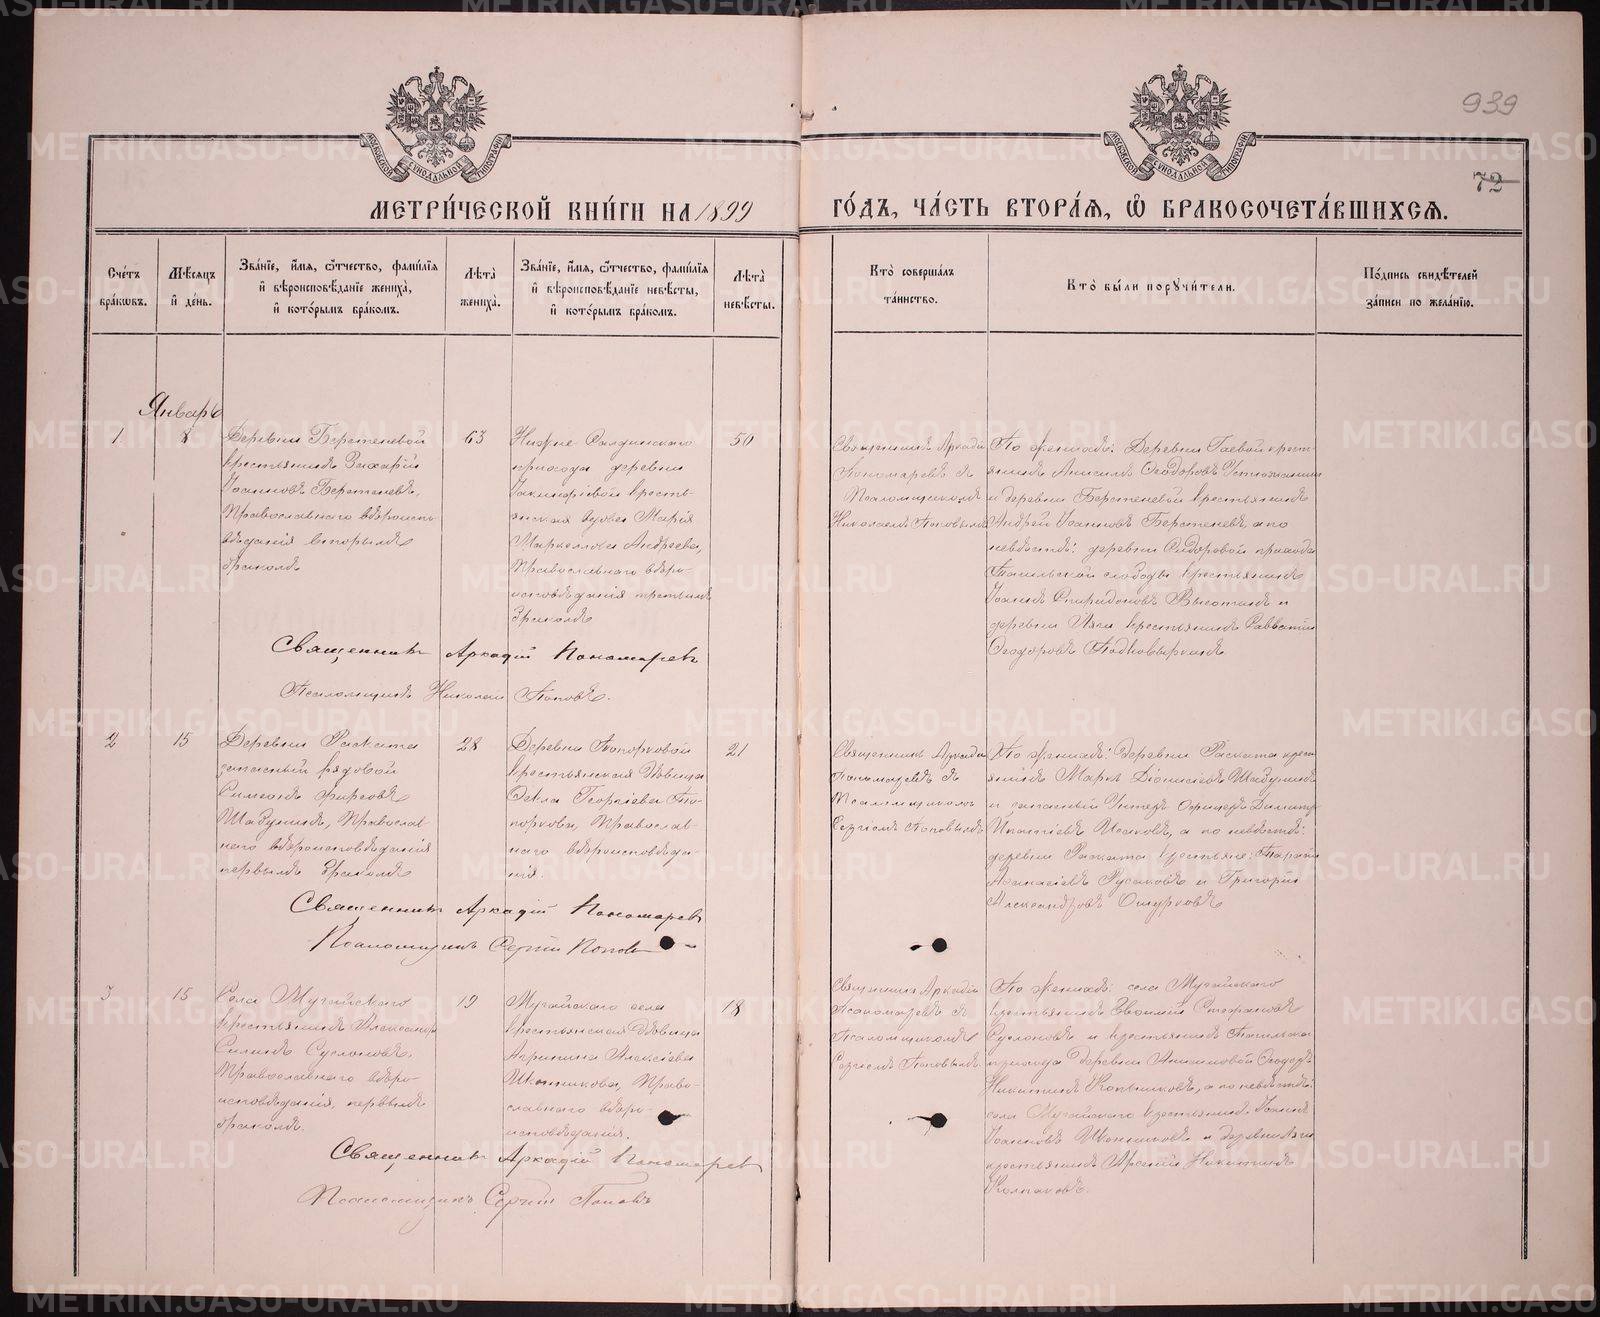 939
72
МЕТРИ́ЧЕСКОЙ КНИ́ГИ НА 1899 ГО́ДЪ, ЧА́СТЬ ВТОРА́Я, Ѽ БРАКОСОЧЕТА́ВШИХСЯ.
МОСКОВСКОЙ СѴНОДАЛЬНОЙ ТИПОГРАФІИ
МОСКОВСКОЙ СѴНОДАЛЬНОЙ ТИПОГРАФІИ
Сче́тъ
бра́кѡвъ.
Мѣ́сяцъ
и҆ де́нь.
Зва́нїе, и҆́мя, ѻ҆́тчество, фами́лїя
и҆ вѣроисповѣ́данїе жениха̀,
и҆ кото́рымъ бра́комъ.
Лѣ́та̀
жениха̀.
Зва́нїе, и҆́мя, ѻ҆́тчество, фами́лїя
и҆ вѣроисповѣ́данїе невѣ́сты,
и҆ кото́рымъ бра́комъ.
Лѣ́та̀
невѣ́сты.
Кто̀ соверша́лъ
та́инство.
Кто̀ бы́ли порꙋчи́тели.
По́дпись свидѣ́телей
за́писи по жела́нїю.
Январь
1
8
Деревни Берстеневой
крестьянинъ Захарій
Іоанновъ Берстеневъ,
Православнаго вѣроиспо-
вѣданія вторымъ
бракомъ
63
Нижне-Салдинскаго
прихода деревни
кресть-
янская вдова Марія
Маркеллова Андреева,
Православнаго вѣро-
исповѣданія третьимъ
бракомъ
50
Священникъ Аркадій
Пономаревъ съ
Псаломщикомъ
Николаемъ Поповымъ
По женихѣ: Деревни Гаевой крест-
янинъ Ѳеодоровъ
и деревни Берстеневой крестьянинъ
Андрей Іоанновъ Берстеневъ, а по
невѣстѣ: деревни Сидоровой прихода
Тагильской слободы крестьянинъ
Іоаннъ Спиридоновъ и
деревни крестьянинъ Савватій
Ѳеодоровъ
Священникъ Аркадій Пономаревъ
Псаломщикъ Николай Поповъ.
2
15
Деревни Раската
запасный рядовой
Симеонъ Фирсовъ
Шадунинъ, Православ-
наго вѣроисповѣданія
первымъ бракомъ
28
Деревни Топорковой
крестьянская дѣвица
Ѳекла Георгіева То-
поркова, Православ-
наго вѣроисповѣда-
нія.
21
Священникъ Аркадій
Пономаревъ съ
Псаломщикомъ
Сергіемъ Поповымъ
По женихѣ: Деревни Раската крест-
янинъ Маркъ Діонисіевъ Шадунинъ
и запасный Унтеръ Офицеръ Димитр
Игнатіевъ Исаковъ, а по невѣстѣ:
деревни Раската крестьяне: Тарасій
Аѳанасіевъ Русаковъ и Григорій
Александровъ
Священникъ Аркадій Пономаревъ
Псаломщикъ Сергій Поповъ
3
15
Села Мугайскаго
крестьянинъ Александръ
Силинъ Суслоновъ,
Православнаго вѣро-
исповѣданія, первымъ
бракомъ.
19
Мугайскаго села
крестьянская дѣвица
Агрипина Алексіева
Право-
славнаго вѣро-
исповѣданія.
18
Священникъ Аркадій
Пономаревъ съ
Псаломщикомъ
Сергіемъ Поповымъ.
По женихѣ: села Мугайскаго
крестьянинъ Евѳимій Стефановъ
Суслоновъ и крестьянинъ Тагильска
прихода деревни Анисимовой Ѳеодоръ
Никитинъ а по невѣстѣ:
села Мугайскаго крестьянинъ Іоаннъ
Іоанновъ и деревни
крестьянинъ Арсеній Никитинъ
Колпаковъ.
Священникъ Аркадій Пономаревъ
Псаломщикъ Сергій Поповъ
METRIKI.GASO-URAL.RU